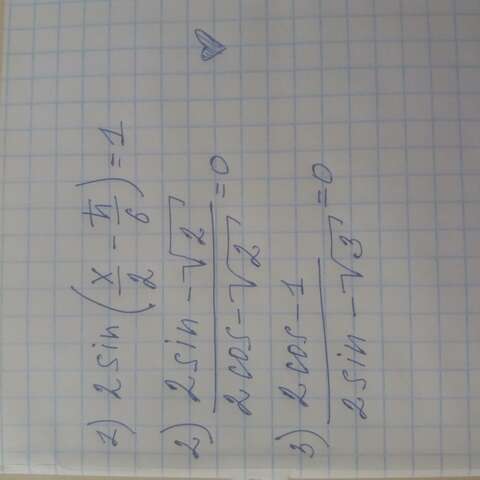 1) 2 sin (x/2 - π/6) = 1
2) (2 sin - √2)/(2 cos - √2) = 0
3) (2 cos - 1)/(2 sin - √3) = 0